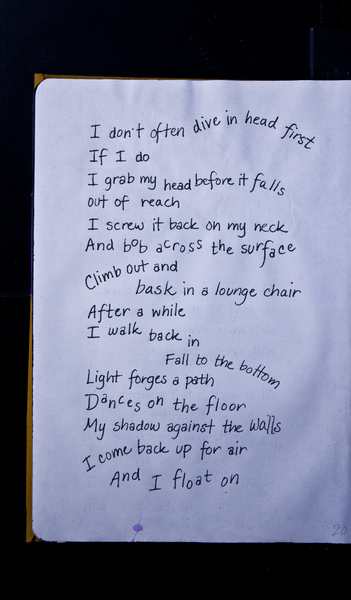 I don't often dive in head first
If I do
I grab my head before it falls
out of reach
I screw it back on my neck
And bob across the surface
Climb out and
bask in a lounge chair
After a while
I walk back in
Fall to the bottom
Light forges a path
Dances on the floor
My shadow against the walls
I come back up for air
And I float on
20